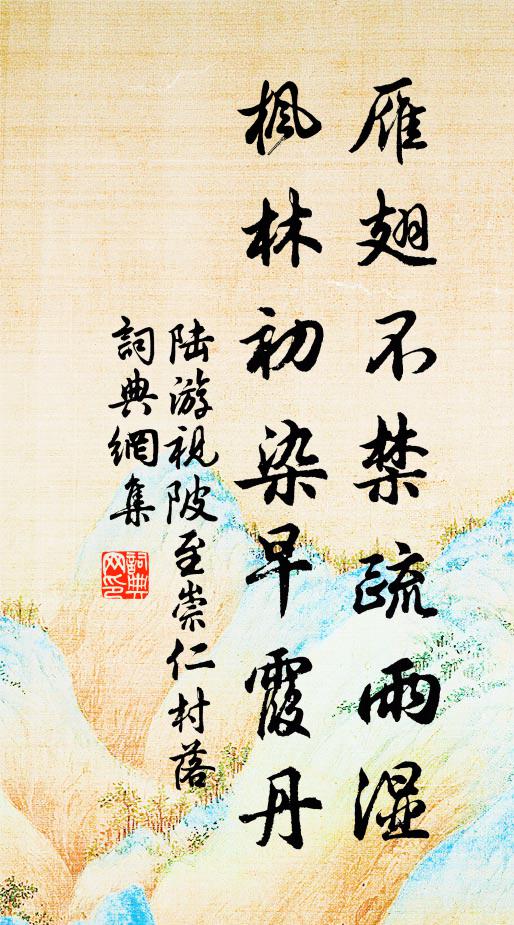 雁翅不禁疏雨湿
枫林初染早霞丹
陆游视陂至崇仁村落
詞典網集
詞典
网印